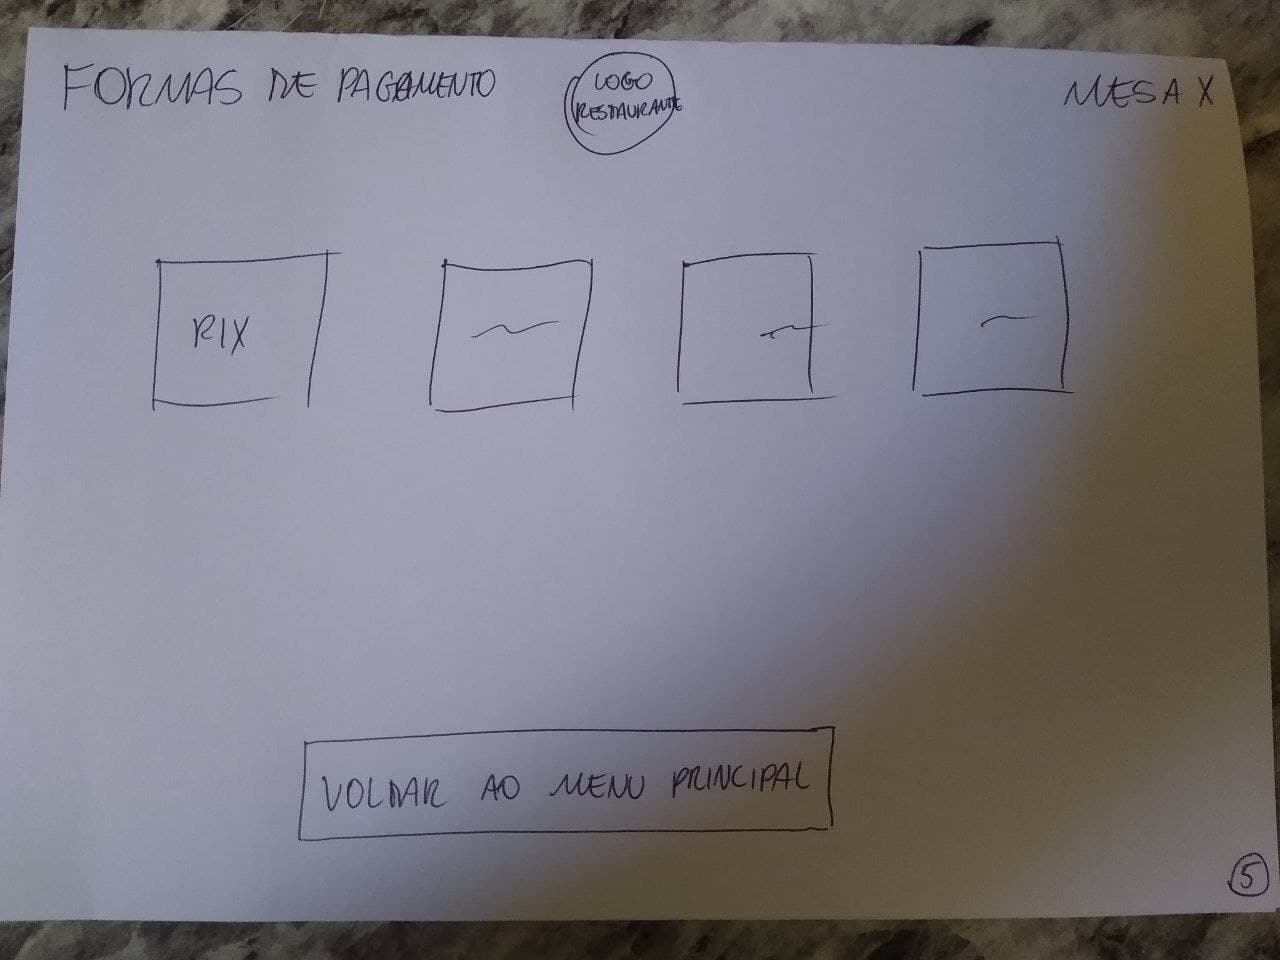 FORMAS DE PAGAMENTO
LOGO
RESTAURANTE
MESA X
PIX
VOLTAR AO MENU PRINCIPAL
5